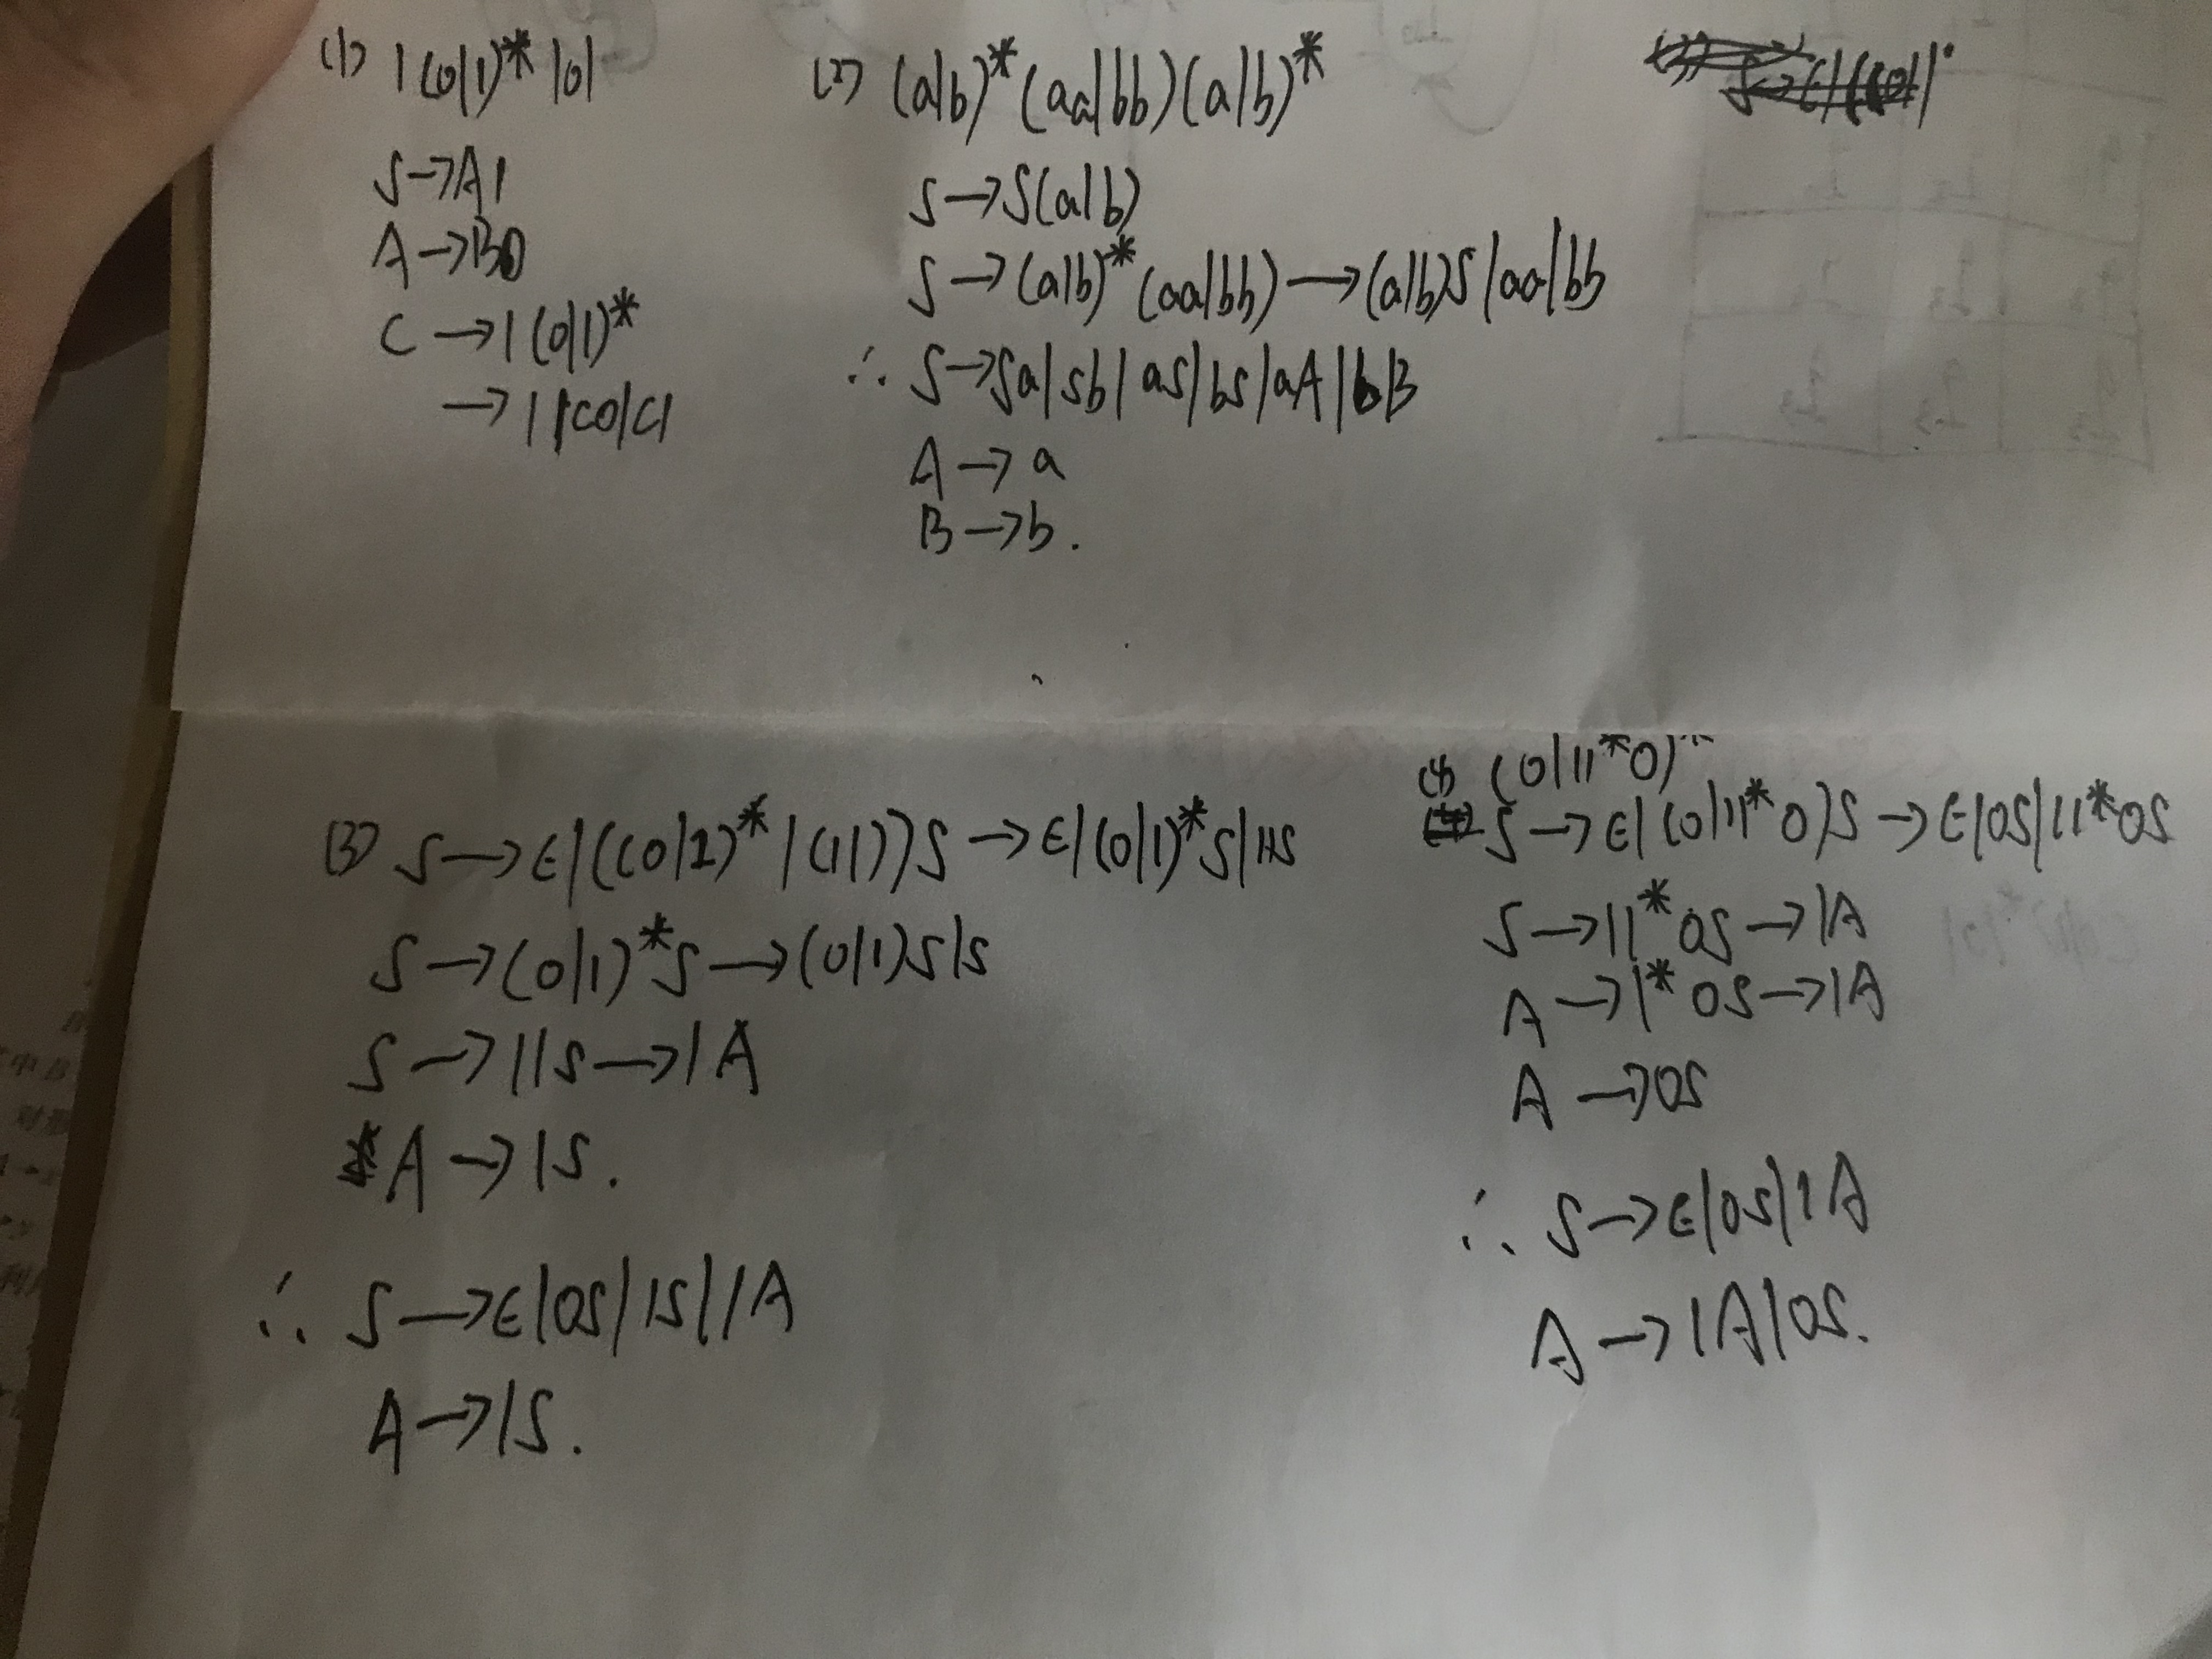 (1) 1(0|1)*101
S→A1
A→B0
C→1(0|1)*
→1|C0|C1
(2) (a|b)*(aa|bb)(a|b)*
S→S(a|b)
S→(a|b)*(aa|bb)→(a|b)S|aa|bb
∴ S→Sa|Sb|aS|bS|aA|bB
A→a
B→b.
(3) S→ε|((0|1)*|(11))S→ε|(0|1)*S|11S
S→(0|1)*S→(0|1)S|S
S→11S→1A
A→1S.
∴ S→ε|0S|1S|1A
A→1S.
(4) (0|11*0)*
S→ε|(0|11*0)S→ε|0S|11*0S
S→11*0S→1A
A→1*0S→1A
A→0S
∴ S→ε|0S|1A
A→1A|0S.